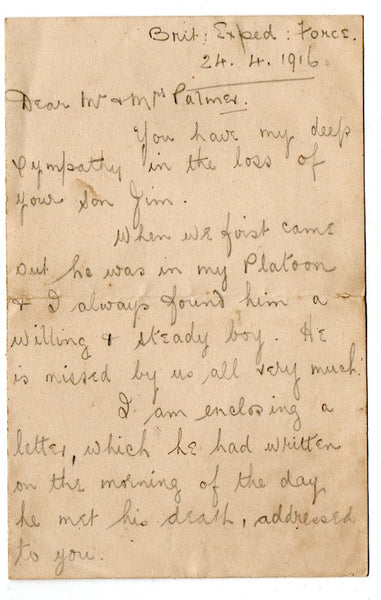 Brit: Exped: Force.
24. 4. 1916
Dear Mr & Mrs Palmer.
You have my deep
sympathy in the loss of
your son Jim.
When we first came
out he was in my Platoon
& I always found him a
willing & steady boy. He
is missed by us all very much.
I am enclosing a
letter, which he had written
on the morning of the day
he met his death, addressed
to you.